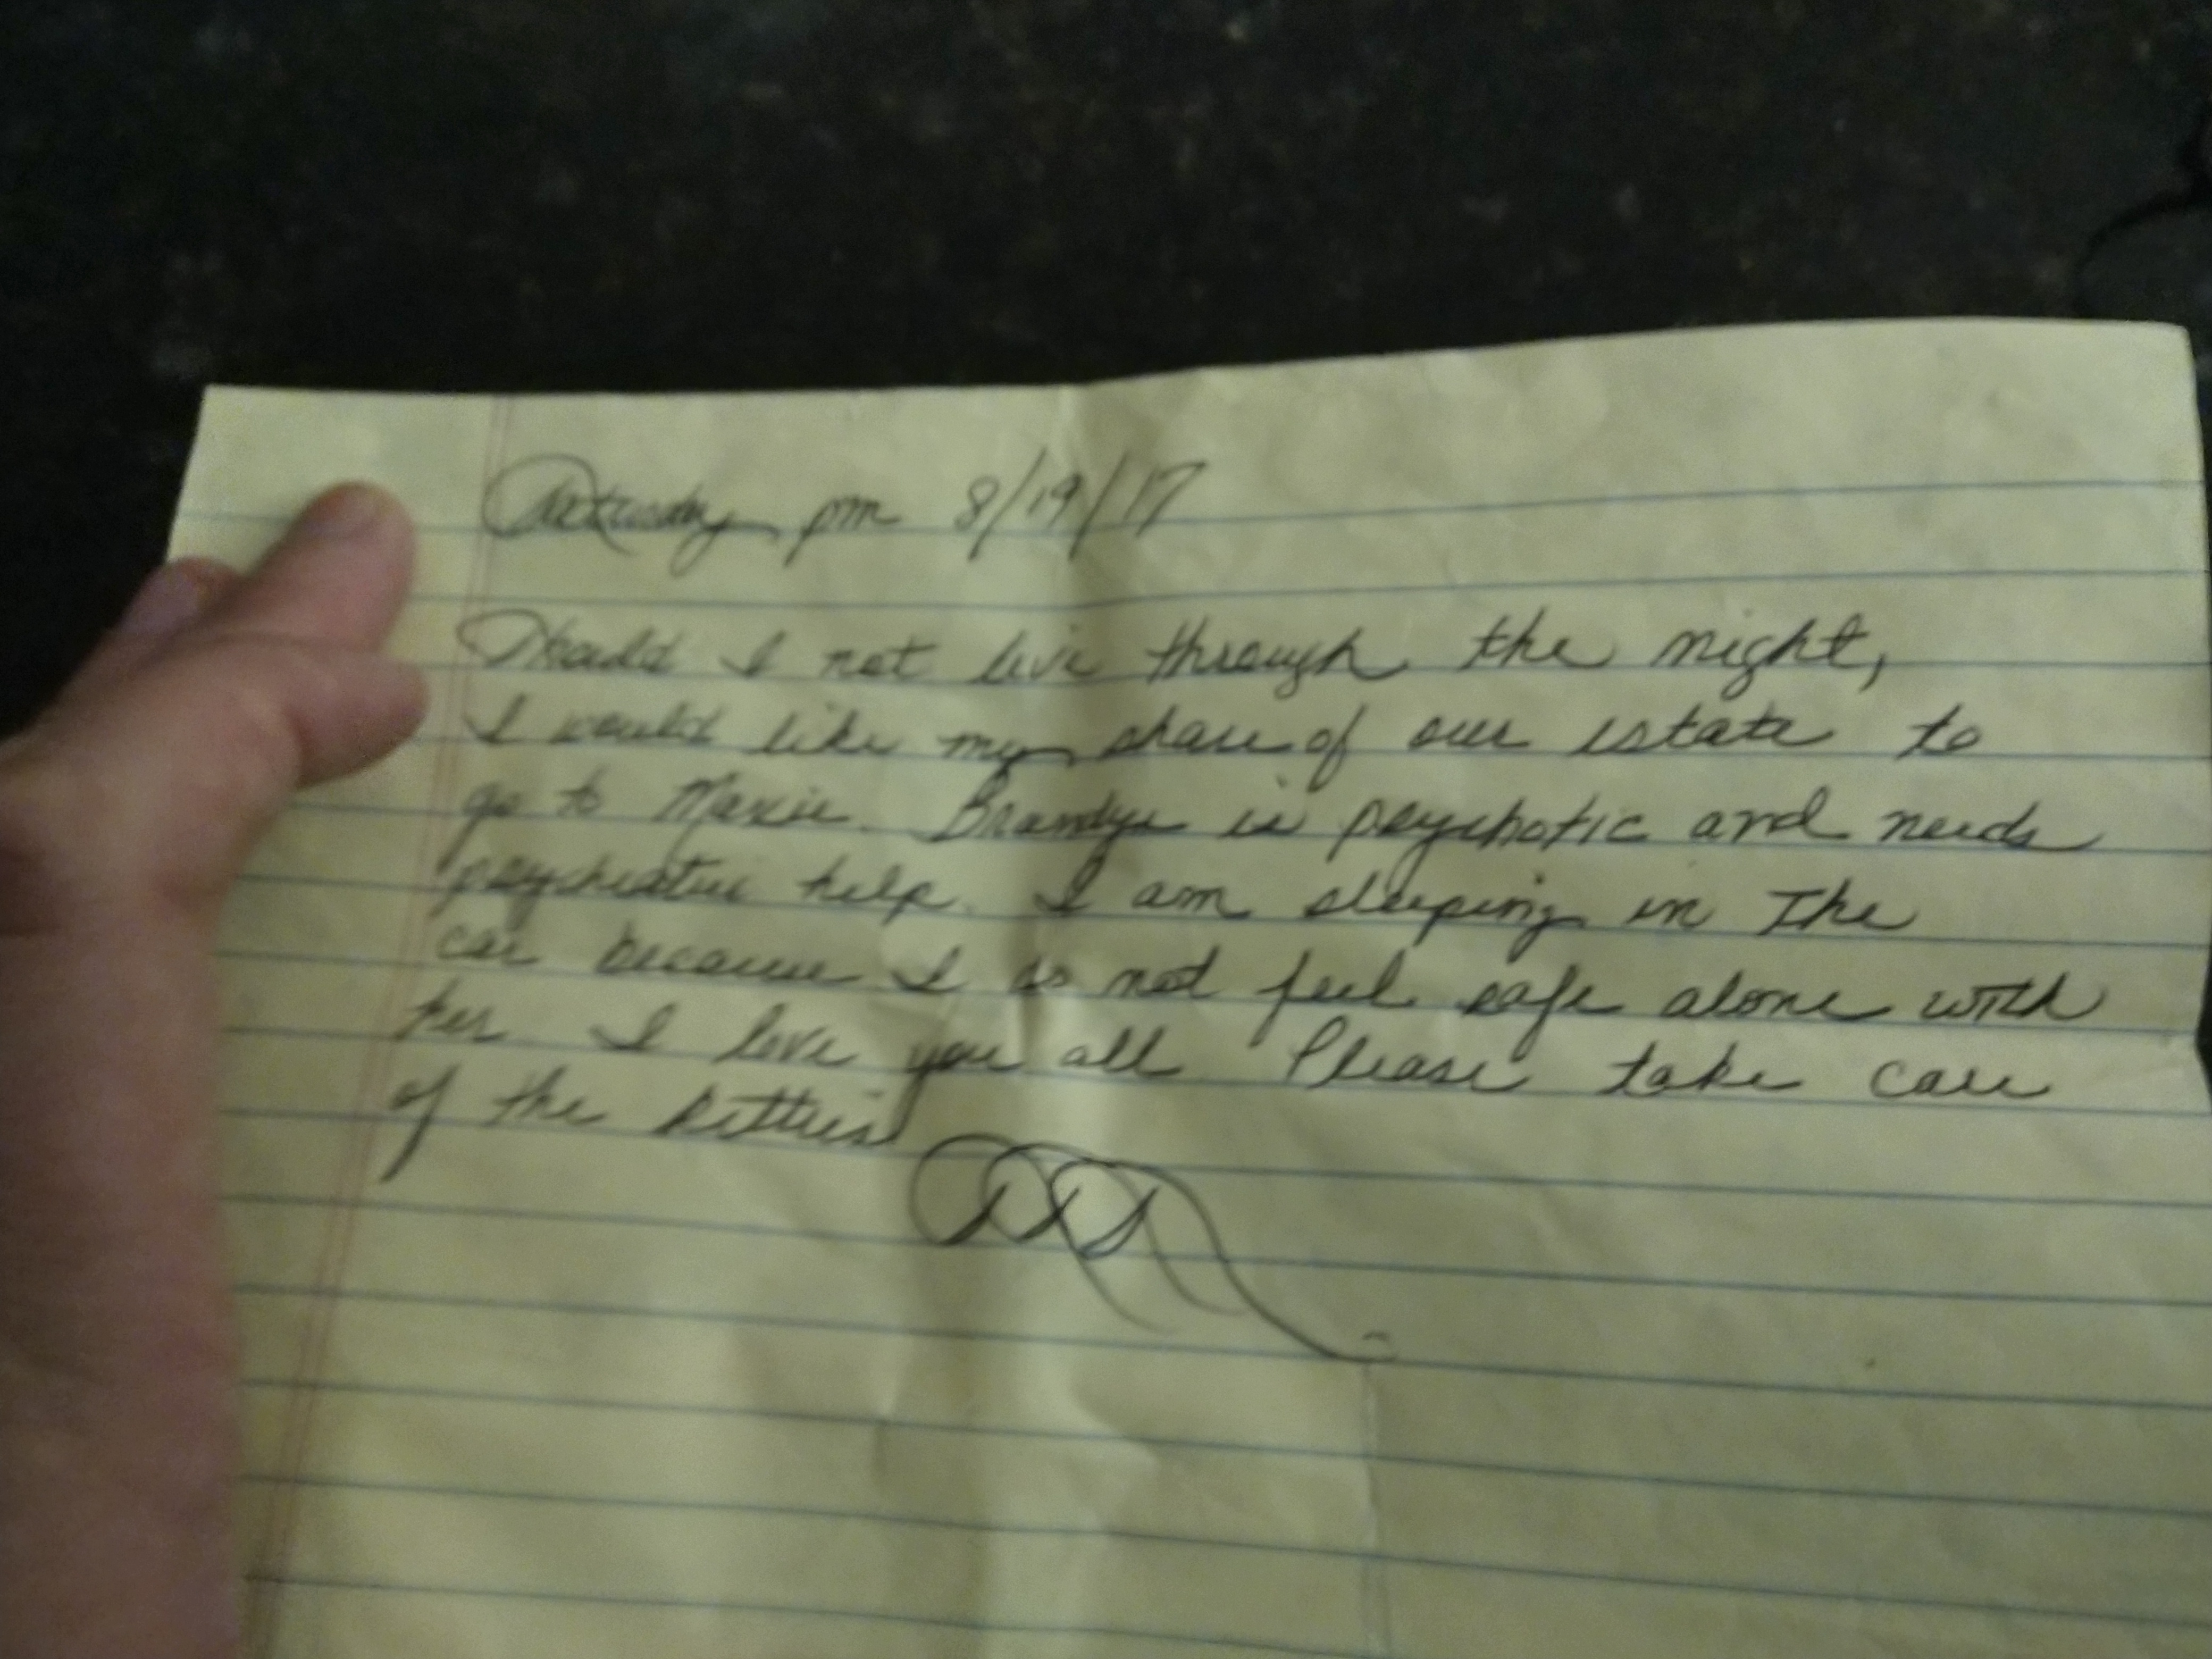 Saturday pm 8/19/17
Should I not live through the night,
I would like my share of our estate to
go to Maxie. Brandye is psychotic and needs
psychiatric help. I am sleeping in the
car because I do not feel safe alone with
her. I love you all. Please take care
of the kitties